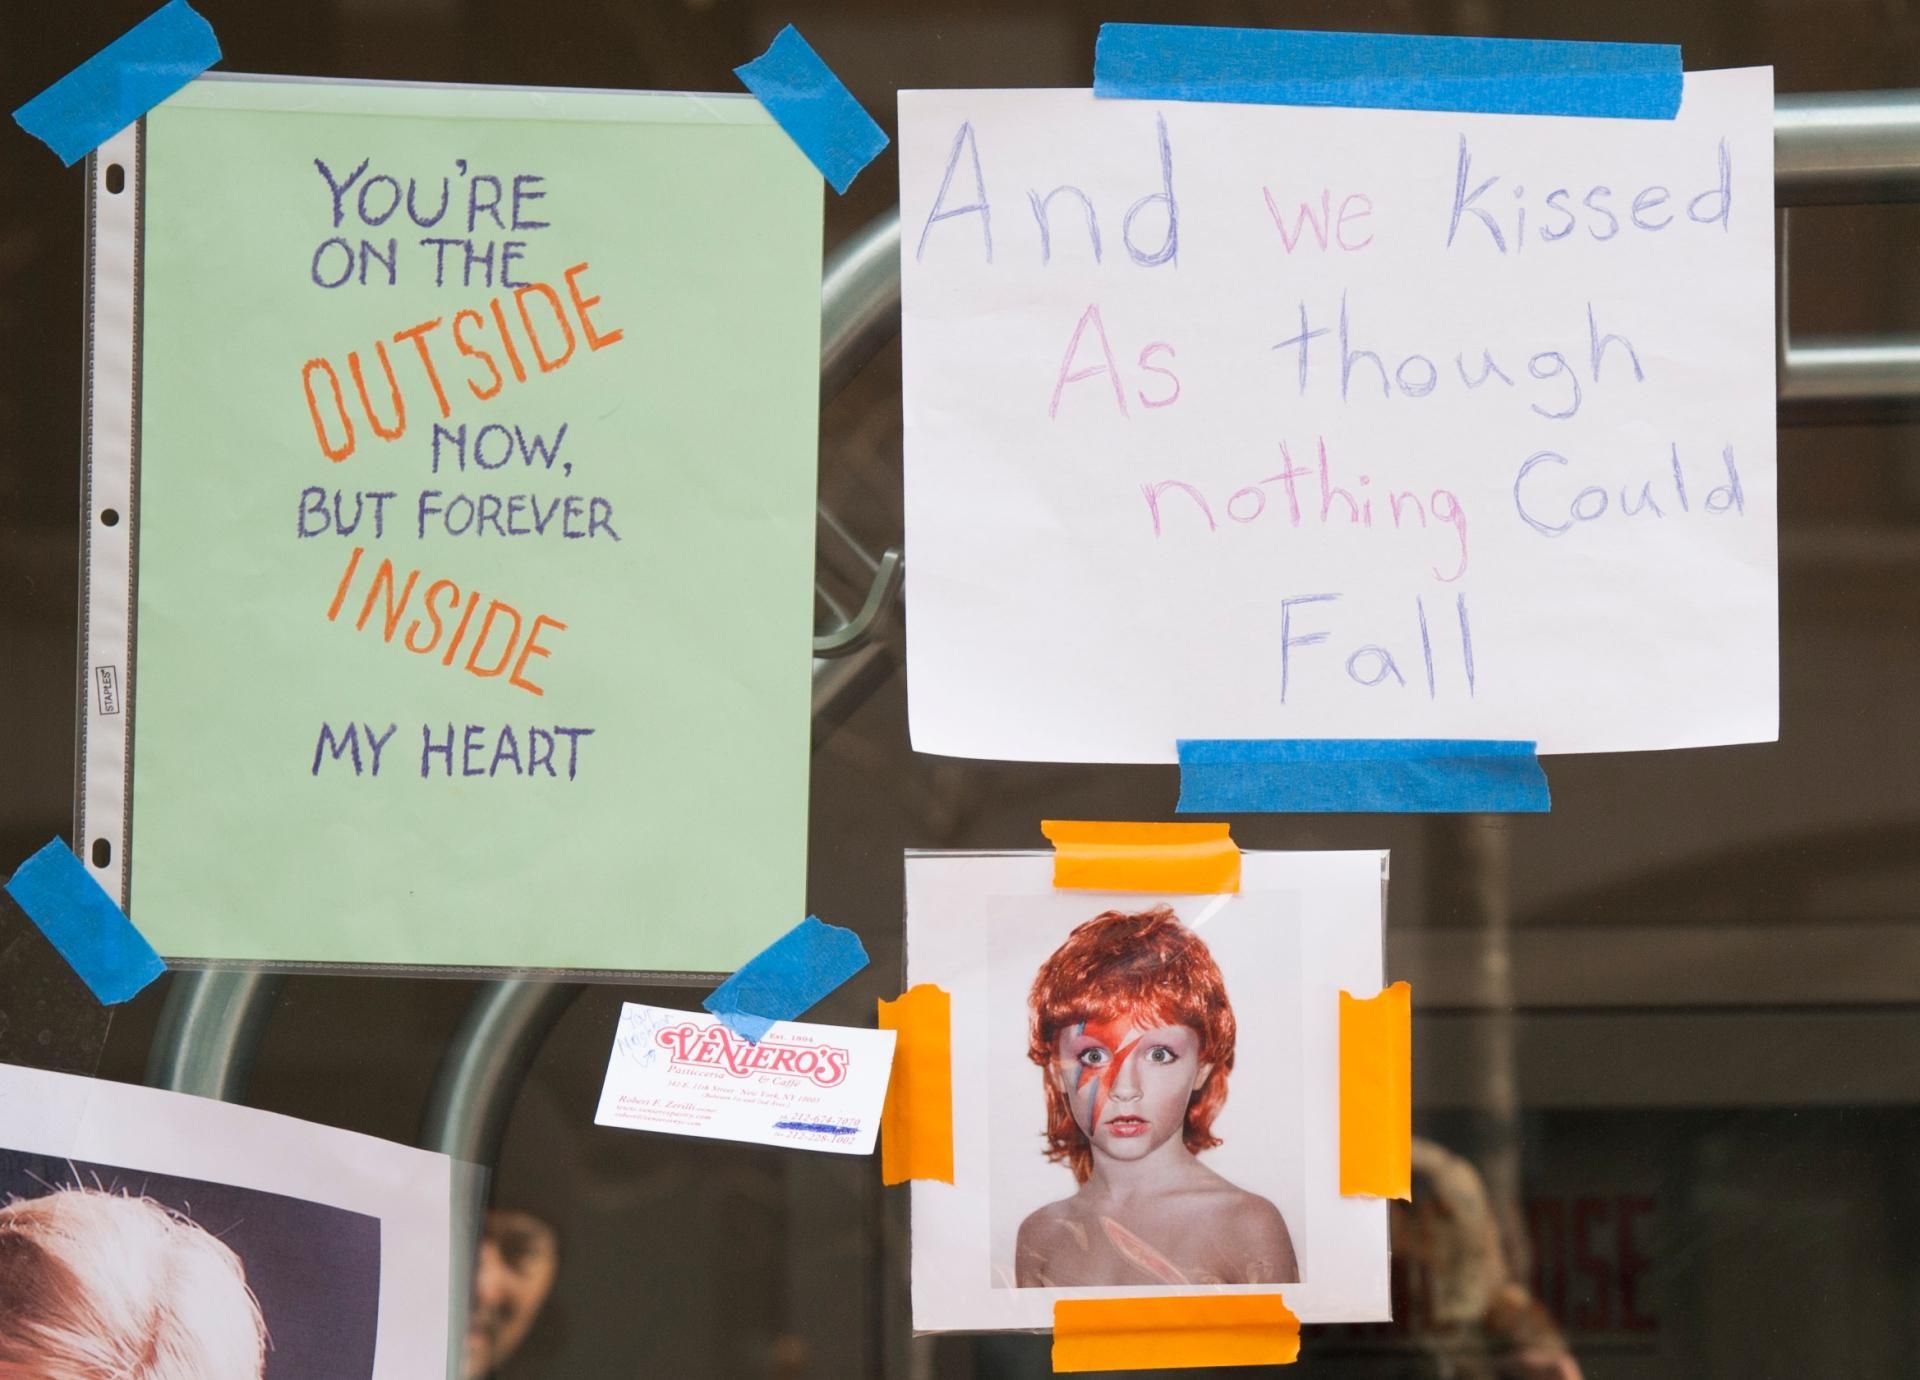 YOU'RE
ON THE
OUTSIDE
NOW,
BUT FOREVER
INSIDE
MY HEART
STAPLES
And we kissed
As though
nothing Could
Fall
Est. 1894
VENIERO'S
Pasticceria & Caffé
342 E. 11th Street New York, NY 10003
(Between 1st and 2nd Aves.)
Robert F. Zerilli owner
212-674-7070
212-228-1002